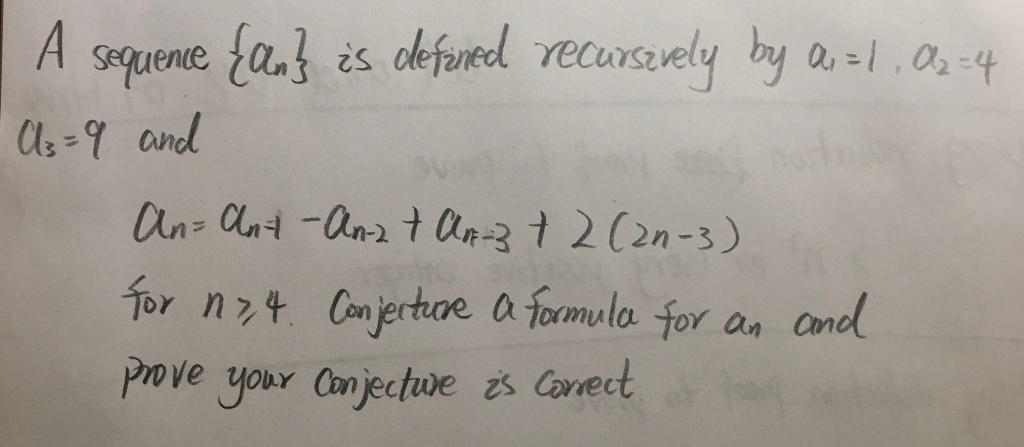 A sequence {an} is defined recursively by a1=1, a2=4
a3=9 and
an= an-1 -an-2 + an-3 + 2(2n-3)
for n≥4. Conjecture a formula for an and
prove your conjecture is correct.